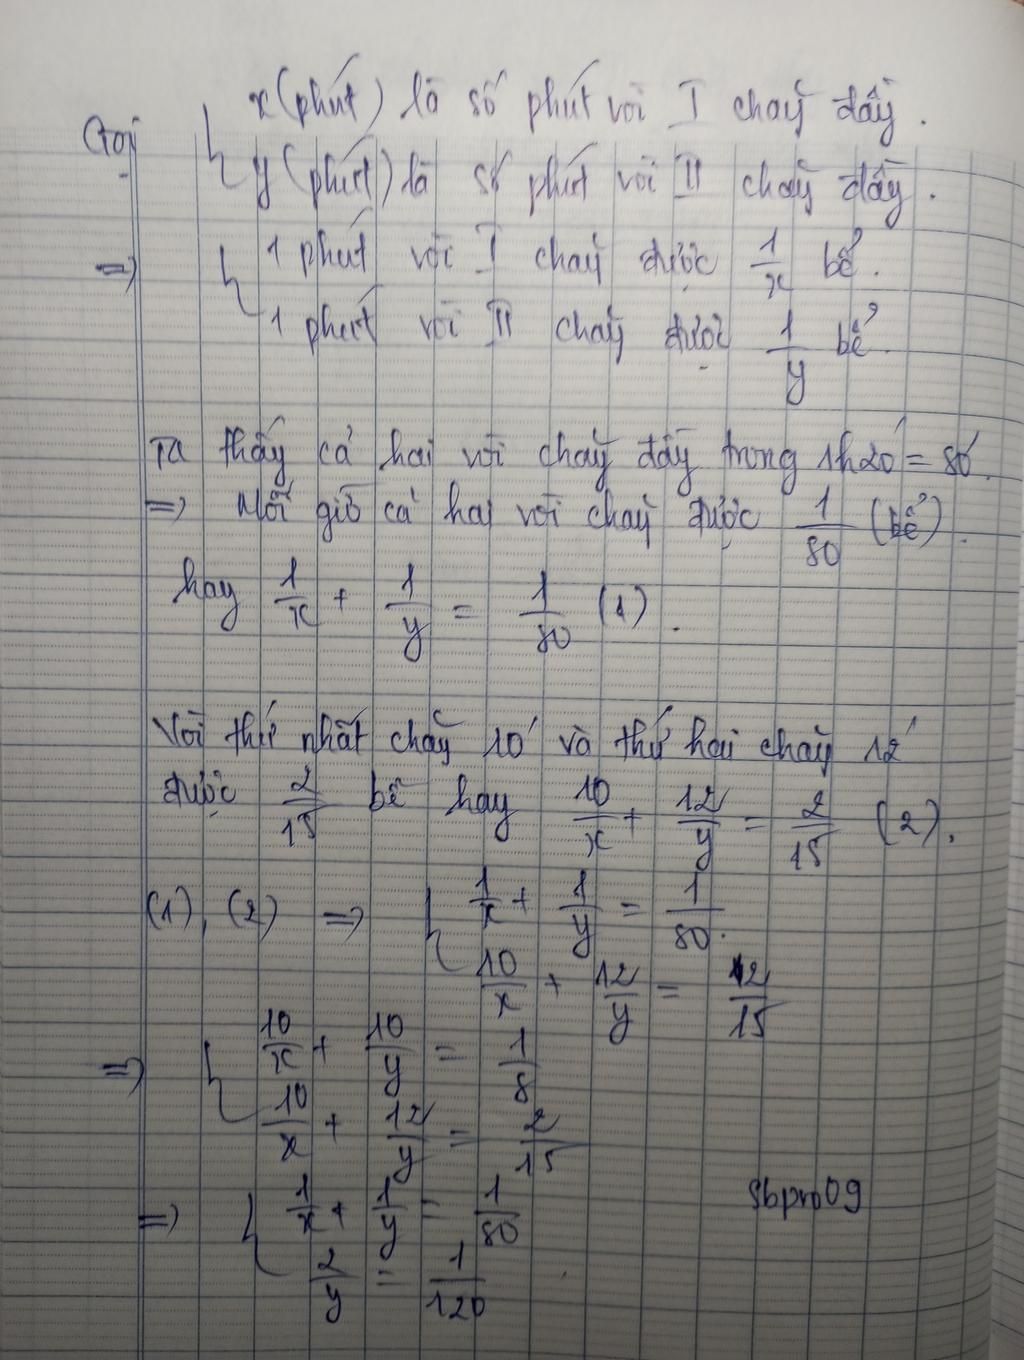 Gọi x (phút) là số phút vòi I chảy đầy.
y (phút) là số phút vòi II chảy đầy.
=> 1 phút vòi I chảy được 1/x bể.
1 phút vòi II chảy được 1/y bể.
Ta thấy cả hai vòi chảy đầy trong 1h20' = 80'.
=> Mỗi giờ cả hai vòi chảy được 1/80 (bể).
hay 1/x + 1/y = 1/80 (1).
Vòi thứ nhất chảy 10' và thứ hai chảy 12'
được 2/15 bể hay 10/x + 12/y = 2/15 (2).
(1), (2) => { 1/x + 1/y = 1/80.
10/x + 12/y = 2/15
=> { 10/x + 10/y = 1/8
10/x + 12/y = 2/15
=> { 1/x + 1/y = 1/80
2/y = 1/120
sbpro09